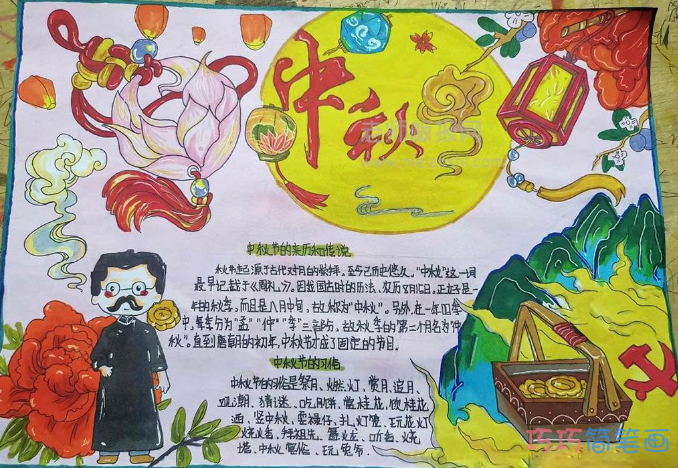 中秋
中秋节的来历和传说
秋节起源于古代对月的崇拜。至今已历史悠久。"中秋"这一词
最早记载于《周礼》。因我国古时的历法，农历8月15日，正好是一
年的秋季，而且是八月中旬，故称为"中秋"。另外，在一年四季
中，每季分为"孟""仲""季"三部份，故秋季的第二个月名为"仲
秋"。直到唐朝的初年，中秋节才成了固定的节日。
中秋节的习俗
中秋节的习俗是祭月、燃灯、赏月、追月、
观潮、猜谜、吃月饼、赏桂花、饮桂花
酒、竖中秋、耍禄仔、扎灯笼、玩花灯
烧
塔、中秋宴俗、玩兔爷.
巧巧简笔画